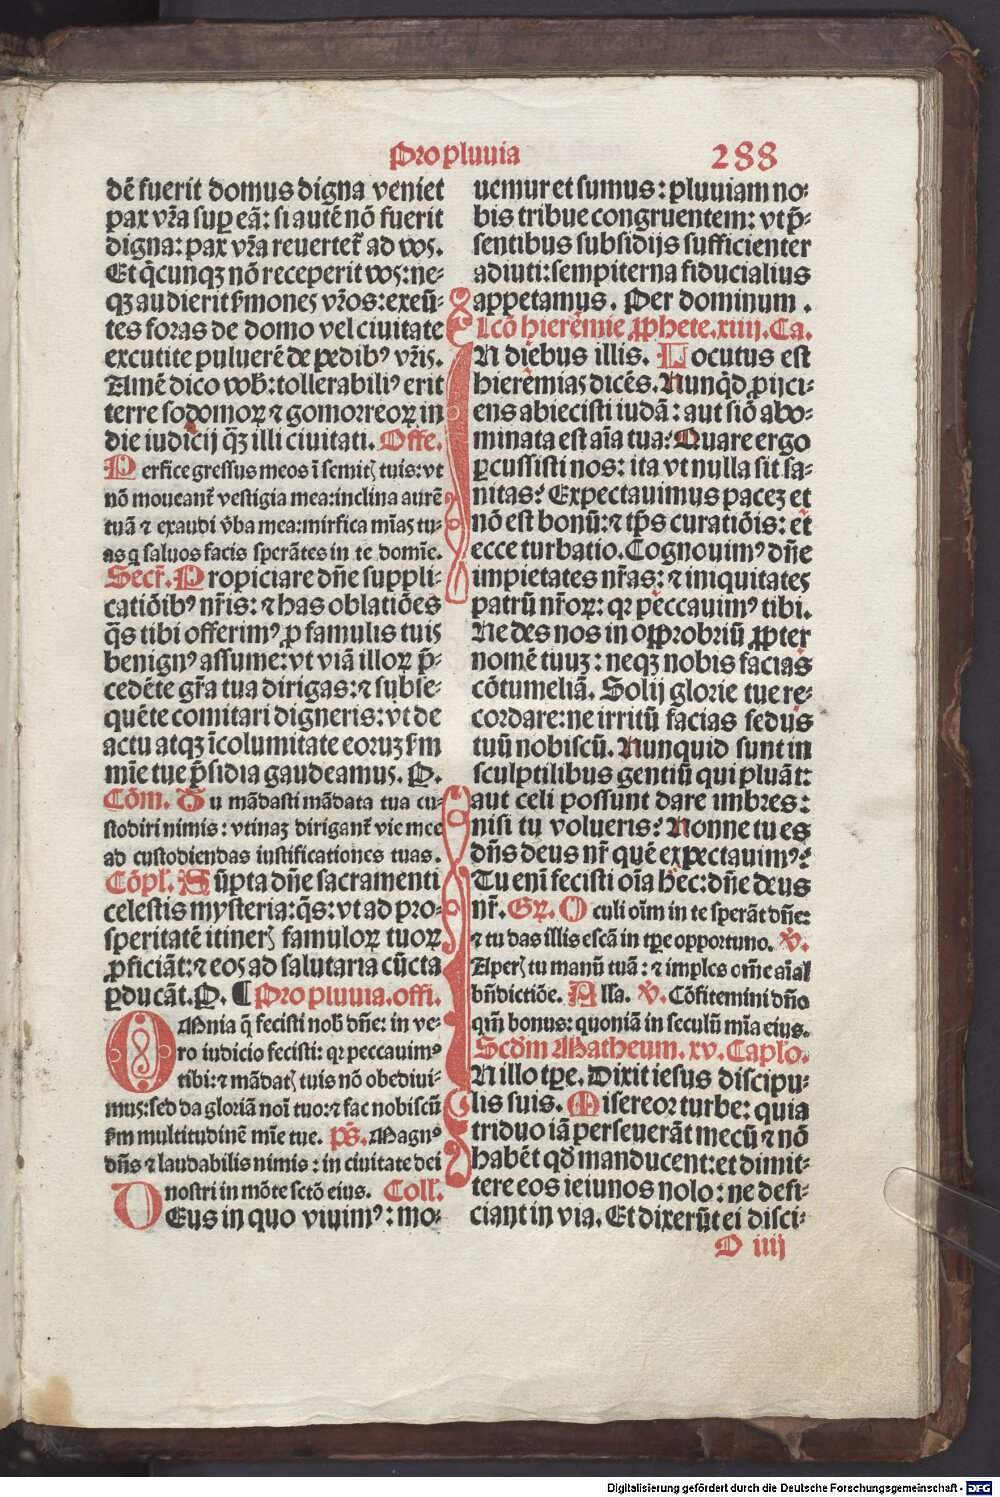 Pro pluuia 288
dē fuerit domus digna veniet
pax vr̄a suꝑ eā: si autē nō fuerit
digna: pax vr̄a reuertet̄ ad vos.
Et q̄cunqꝫ nō receperit vos: ne-
qꝫ audierit ẜmones vr̄os: exeū-
tes foras de domo vel ciuitate
excutite puluerē de pedibꝰ vr̄is.
Amē dico vob̄: tollerabiliꝰ erit
terre sodomoꝝ ⁊ gomorreoꝝ in
die iudicij q̄ꝫ illi ciuitati. Offe.
Perfice gressus meos ī semitꝭ tuis: vt
nō moueant̄ vestigia mea: inclina aurē
tuā ⁊ exaudi v̄ba mea: mirfica mīas tu-
as q saluos facis sperātes in te domīe.
Secr̄. Propiciare dn̄e suppli-
catiōibꝰ nr̄is: ⁊ has oblatiōes
q̄s tibi offerimꝰ ꝓ famulis tuis
benignꝰ assume: vt viā illoꝝ p̄-
cedēte gr̄a tua dirigas: ⁊ subse-
quēte comitari digneris: vt de
actu atqꝫ īcolumitate eoruꝫ ẜm
mīe tue p̄sidia gaudeamus. P.
Cōm. Tu mādasti mādata tua cu-
stodiri nimis: vtinaꝫ dirigant̄ vie mee
ad custodiendas iustificationes tuas.
Cōpl̄. Sūpta dn̄e sacramenti
celestis mysteria: q̄s: vt ad pro-
speritatē itinerꝭ famuloꝝ tuoꝝ
ꝓficiāt: ⁊ eos ad salutaria cūcta
ꝑducāt. P. ¶ Pro pluuia. offi.
OMnia q̄ fecisti nob̄ dn̄e: in ve-
ro iudicio fecisti: qꝛ peccauimꝰ
tibi: ⁊ mādatꝭ tuis nō obediui-
mus: sed da gloriā noī tuo: ⁊ fac nobiscū
ẜm multitudinē mīe tue. ps̄. Magnꝰ
dn̄s ⁊ laudabilis nimis: in ciuitate dei
nostri in mōte sctō eius. Coll̄.
DEus in quo viuimꝰ: mo-
uemur et sumus: pluuiam no-
bis tribue congruentem: vt p̄-
sentibus subsidijs sufficienter
adiuti: sempiterna fiducialius
appetamus. Per dominum.
Lcō hieremie ꝓphete. xiiij. Ca.
IN diebus illis. Locutus est
hieremias dicēs. Nunqd̄ ꝓijci-
ens abiecisti iudā: aut siō abo-
minata est aīa tua? Quare ergo
ꝑcussisti nos: ita vt nulla sit sa-
nitas? Expectauimus paceꝫ et
nō est bonū: ⁊ tp̄s curatiōis: et
ecce turbatio. Cognouimꝰ dn̄e
impietates nr̄as: ⁊ iniquitates
patrū nr̄oꝝ: qꝛ peccauimꝰ tibi.
Ne des nos in opprobriū ꝓpter
nomē tuuꝫ: neqꝫ nobis facias
cōtumeliā. Solij glorie tue re-
cordare: ne irritū facias fedus
tuū nobiscū. Nunquid sunt in
sculptilibus gentiū qui pluāt:
aut celi possunt dare imbres:
nisi tu volueris? Nonne tu es
dn̄s deus nr̄ quē expectauimꝰ?
Tu enī fecisti oīa hec: dn̄e deus
nr̄. Gꝝ. Oculi oīm in te sperāt dn̄e:
⁊ tu das illis escā in tp̄e opportuno. v̄.
Aperꝭ tu manū tuā: ⁊ imples om̄e aīal
bn̄dictiōe. All̄a. v̄. Cōfitemini dn̄o
qm̄ bonus: quoniā in seculū mīa eius.
Scd̄m Matheum. xv. Caplo.
IN illo tp̄e. Dixit iesus discipu-
lis suis. Misereor turbe: quia
triduo iā perseuerāt mecū ⁊ nō
habēt qd̄ manducent: et dimit-
tere eos ieiunos nolo: ne defi-
ciant in via. Et dixerūt ei disci-
D iiij
Digitalisierung gefördert durch die Deutsche Forschungsgemeinschaft - DFG